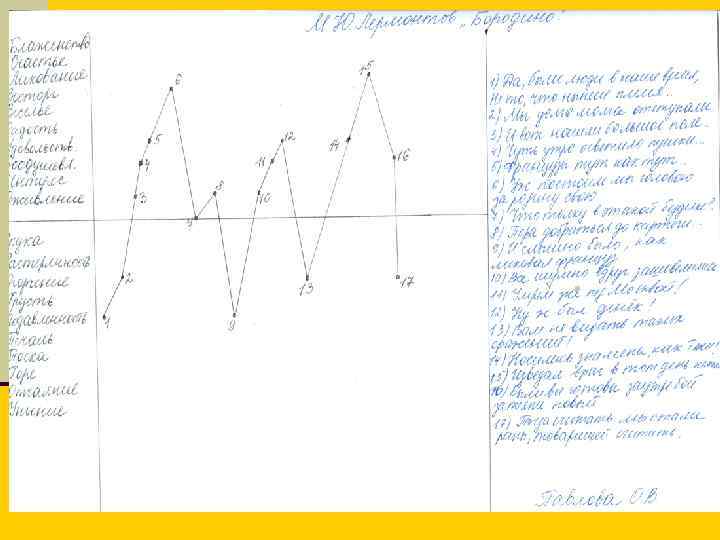 М. Ю. Лермонтов „Бородино".
Блаженство
Счастье
Ликование
Восторг
Веселье
Радость
Удовольств.
Воодушевл.
Интерес
Оживление
Скука
Растерянность
Огорчение
Грусть
Подавленность
Печаль
Тоска
Горе
Отчаяние
Уныние
1
2
3
4
5
6
7
8
9
10
11
12
13
14
15
16
17
1) Да, были люди в наше время,
Не то, что нынешнее племя..
2) Мы долго молча отступали
3) И вот нашли большое поле..
4) Чуть утро осветило пушки...
5) Французы тут как тут.
6) Уж постоим мы головою
за родину свою
7) Что толку в этакой безделке?
8) Пора добраться до картечи..
9) И слышно было, как
ликовал француз
10) Все шумно вдруг зашевелилось
11) Умрем же под Москвой!
12) Ну ж был денёк!
13) Вам не видать таких
сражений!
14) Носились знамена, как тени!
15) Изведал враг в тот день
16) Были все готовы заутра бой
затеять новый
17) Тогда считать мы стали
раны, товарищей считать.
Павлова О В